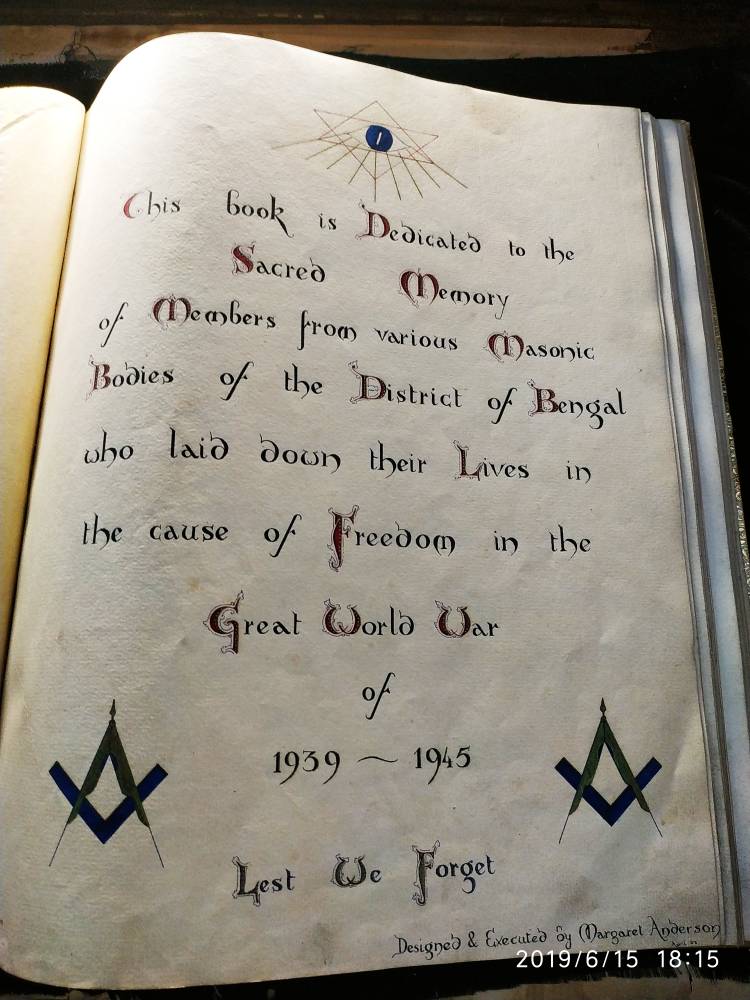 This book is Dedicated to the
Sacred Memory
of Members from various Masonic
Bodies of the District of Bengal
who laid down their Lives in
the cause of Freedom in the
Great World War
of
1939 ~ 1945
Lest We Forget
Designed & Executed by Margaret Anderson
2019/6/15 18:15